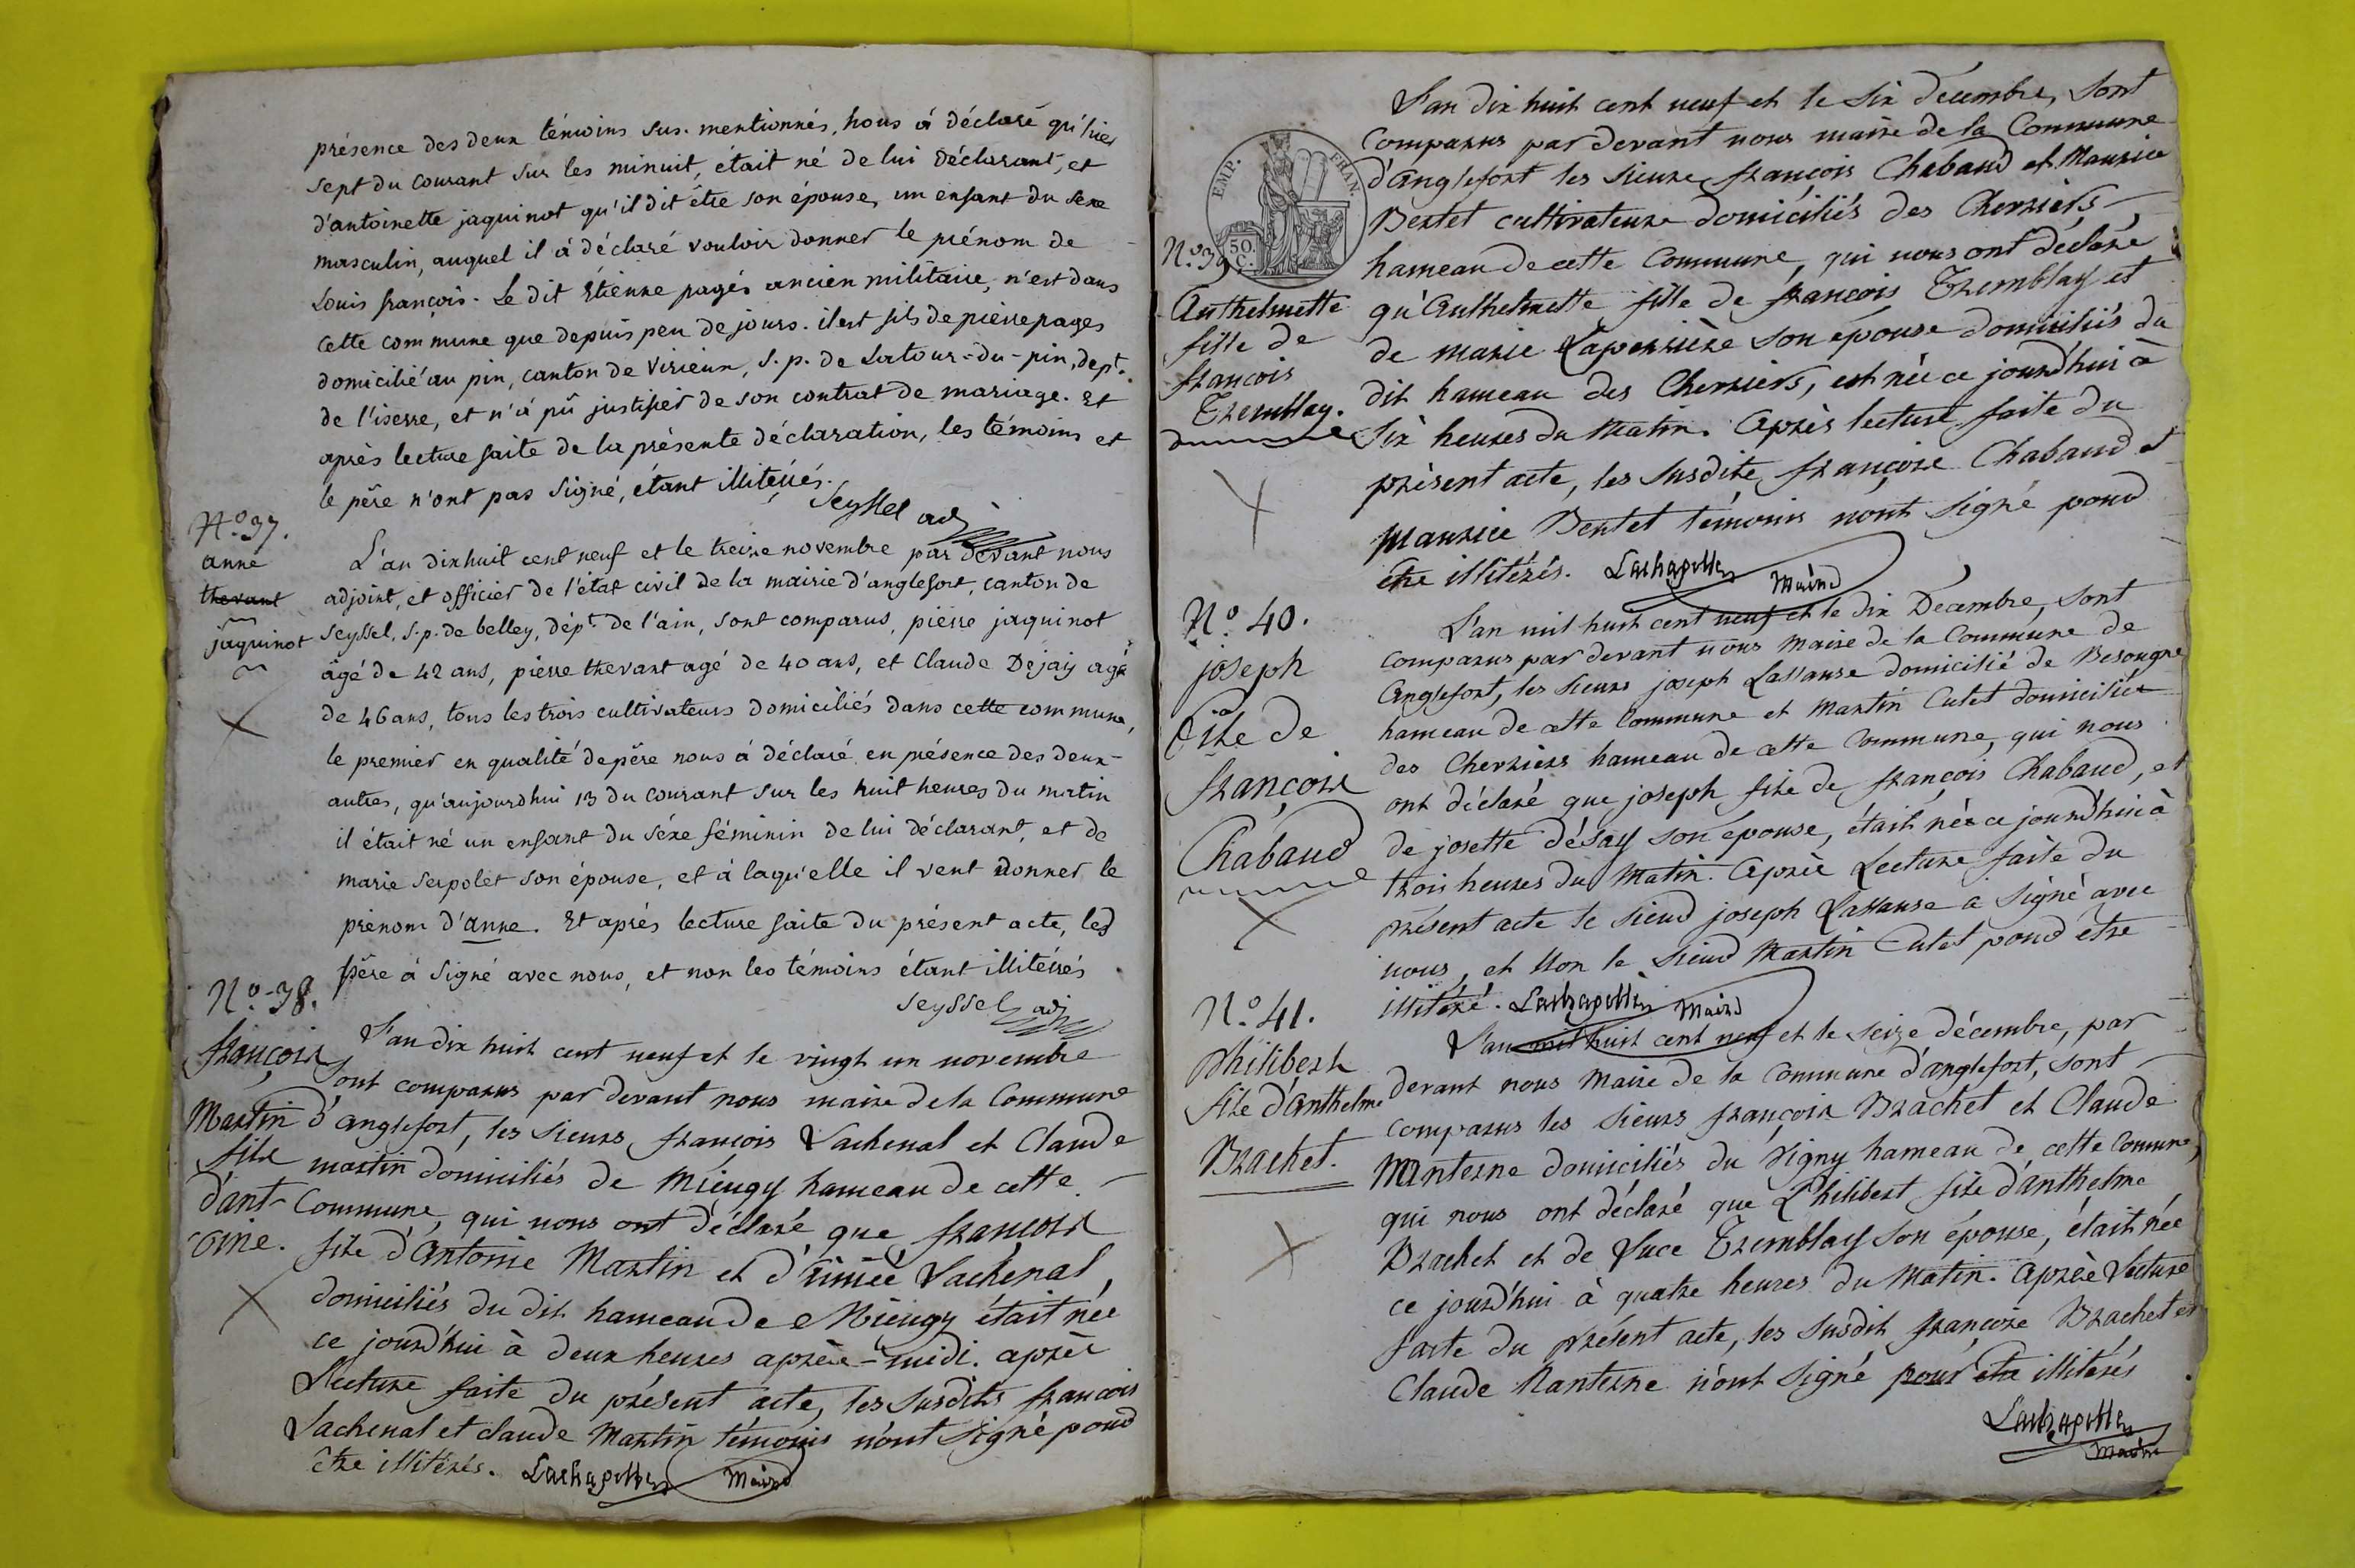 présence des deux témoins sus-mentionnés, nous à déclaré qu'hier
sept du courant sur les minuit, était né de lui déclarant, et
d'antoinette jaquinot qu'il dit être son épouse, un enfant du sexe
masculin, auquel il à déclaré vouloir donner le prénom de
Louis françois. Le dit Etienne pagés ancien militaire, n'est dans
cette commune que depuis peu de jours. il est fils de pierre pages
domicilié au pin, canton de virieux, s.p. de Latour-du-pin, dept.
de l'iserre, et n'à pû justifier de son contrat de mariage. Et
après lecture faite de la présente déclaration, les témoins et
le père n'ont pas signé, étant illitérrés.
Seyssel adj
N.º 37.
anne
thevant
jaquinot
L'an dixhuit cent neuf et le treize novembre par devant nous
adjoint, et officier de l'état civil de la mairie d'anglefort, canton de
Seyssel, s.p. de belley, dépt. de l'ain, sont comparus, pierre jaquinot
âgé de 42 ans, pierre thevant agé de 40 ans, et Claude Dejaiy agé
de 46 ans, tous les trois cultivateurs domiciliés dans cette commune,
le premier en qualité de père nous à déclaré en présence des deux-
autres, qu'aujourdhui 13 du courant sur les huit heures du matin
il était né un enfant du séxe féminin de lui déclarant, et de
marie serpolet son épouse, et à laqu'elle il veut donner le
prénom d'anne. Et aprés lecture faite du présent acte, led
père à signé avec nous, et non les témoins étant illitérrés
seyssel adj
N.º 38.
françois
Martin
fils
d'ant-
oine.
L'an dix huit cent neuf et le vingt un novembre
sont comparus par devant nous maire dela Commune
d'anglefort, les sieurs françois Vachenal et Claude
martin domiciliés de Mieugy hameau de cette
Commune, qui nous ont déclaré que françois
fils d'Antoine Martin et d'aimée Vachenal,
domiciliés du dit hameau de Mieugy était née
ce jourd'hui à deux heures après-midi. après
Lecture faite du présent acte, les susdits françois
Vachenal et claude Martin témoins n'ont signé pour
être illitérés. Lachapelle Maire
EMP. FRAN.
50 C.
N.º 39
Anthelmette
fille de
françois
Tremblay.
L'an dix huit cent neuf et le six décembre, sont
Comparus par devant nous maire de la Commune
d'anglefort les sieurs françois Chabaud et Maurice
Bertet cultivateurs domiciliés des Cherriers
hameau de cette Commune, qui nous ont déclaré
qu'Anthelmette fille de françois Tremblay et
de marie Laperrière son épouse domiciliés du
dit hameau des Cherriers, est née ce jourd'hui à
six heures du Matin. Après lecture faite du
présent acte, les susdits françois Chabaud et
Maurice Bertet témoins n'ont signé pour
être illitérés. Lachapelle Maire
N.º 40.
joseph
fils de
françois
Chabaud
L'an mil huit cent neuf et le dix Décembre, sont
comparus par devant nous Maire de la Commune de
anglefort, les sieurs joseph Lassause domicilié de Besougne
hameau de cette Commune et Martin Cutet domicilié
des Cherriers hameau de cette Commune, qui nous
ont déclaré que joseph fils de françois Chabaud, et
de josette désay son épouse, était née ce jourd'hui à
trois heures du Matin. Après Lecture faite du
présent acte le sieur joseph Lassause à signé avec
nous, et Non le sieur Martin Cutet pour être
illitéré. Lachapelle Maire
N.º 41.
Philibert
fils d'Anthelme
Brachet.
L'an mil huit cent neuf et le seize décembre, par
devant nous Maire de la Commune d'anglefort, sont
comparus les sieurs françois Brachet et Claude
Manterne domiciliés du Vigny hameau de cette Comune,
qui nous ont déclaré que Philibert fils d'anthelme
Brachet et de Luce Tremblay son épouse, était née
ce jourd'hui à quatre heures du Matin. Après Lecture
faite du présent acte, les susdit françois Brachet et
Claude Manterne n'ont signé pour être illitérés
Lachapelle
Maire